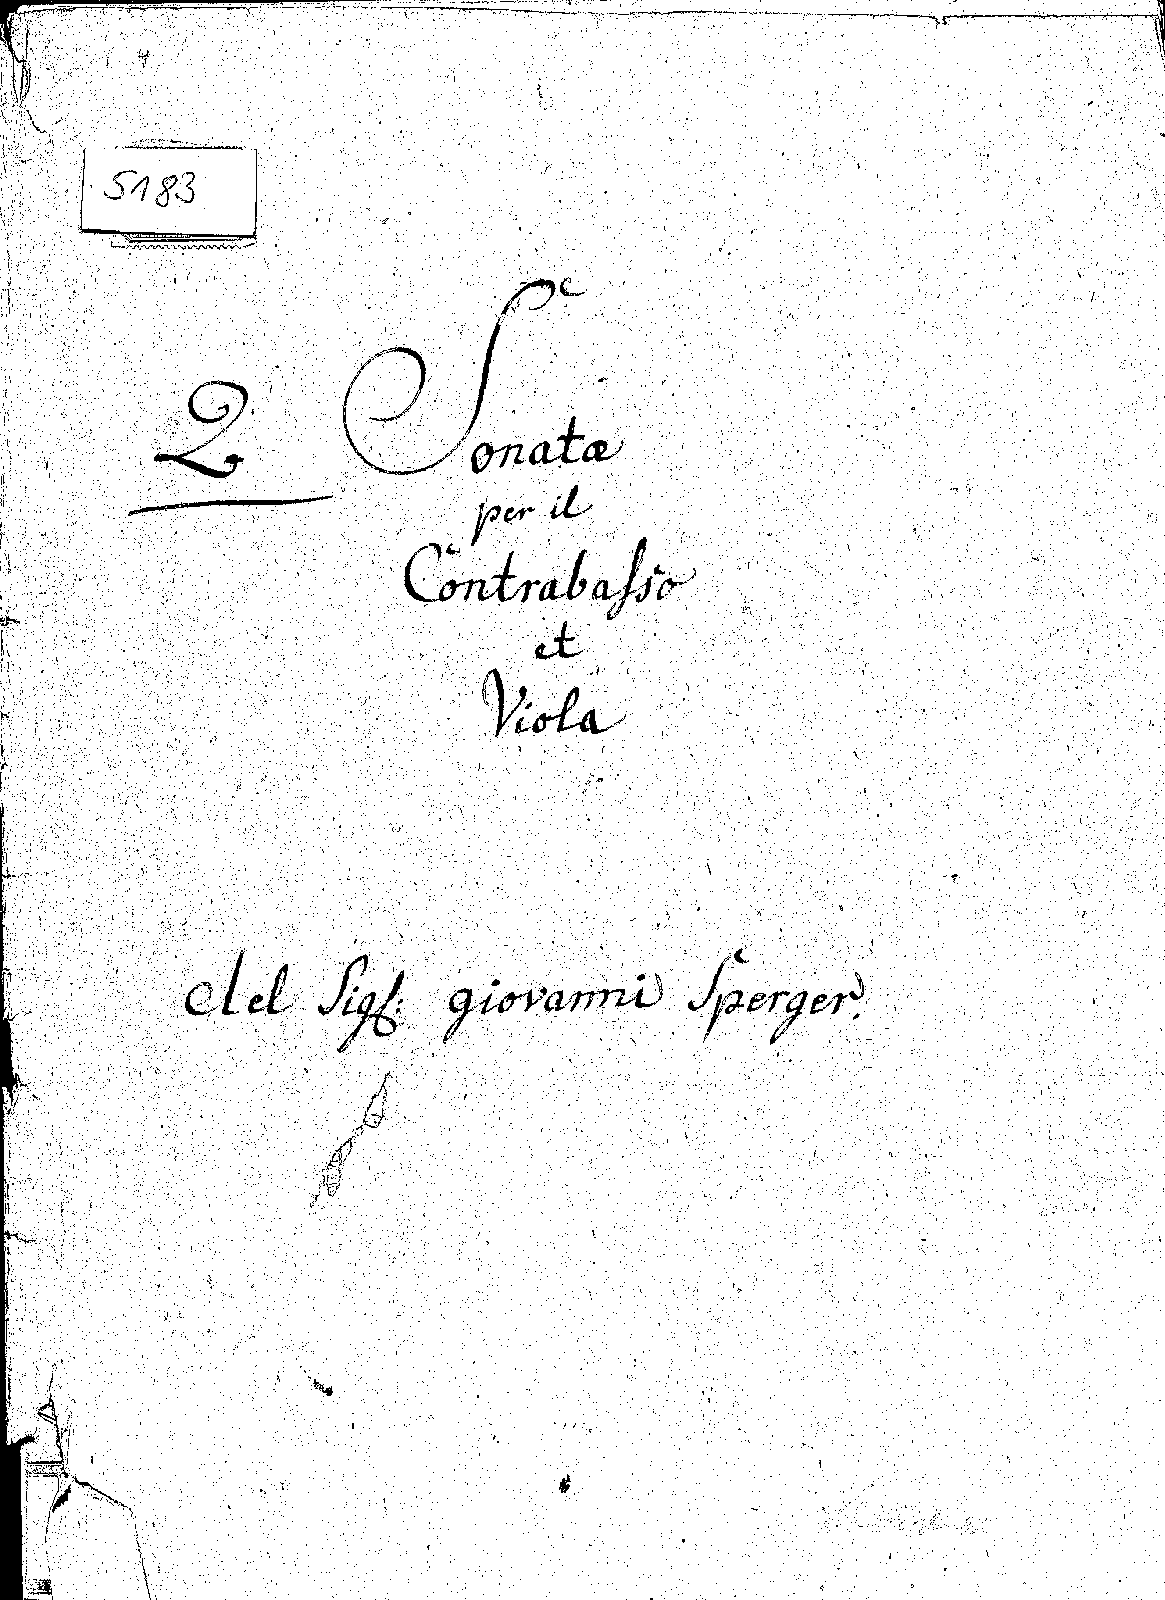 5183
2 Sonatæ
per il
Contrabasso
et
Viola
del Sigr: giovanni Sperger.